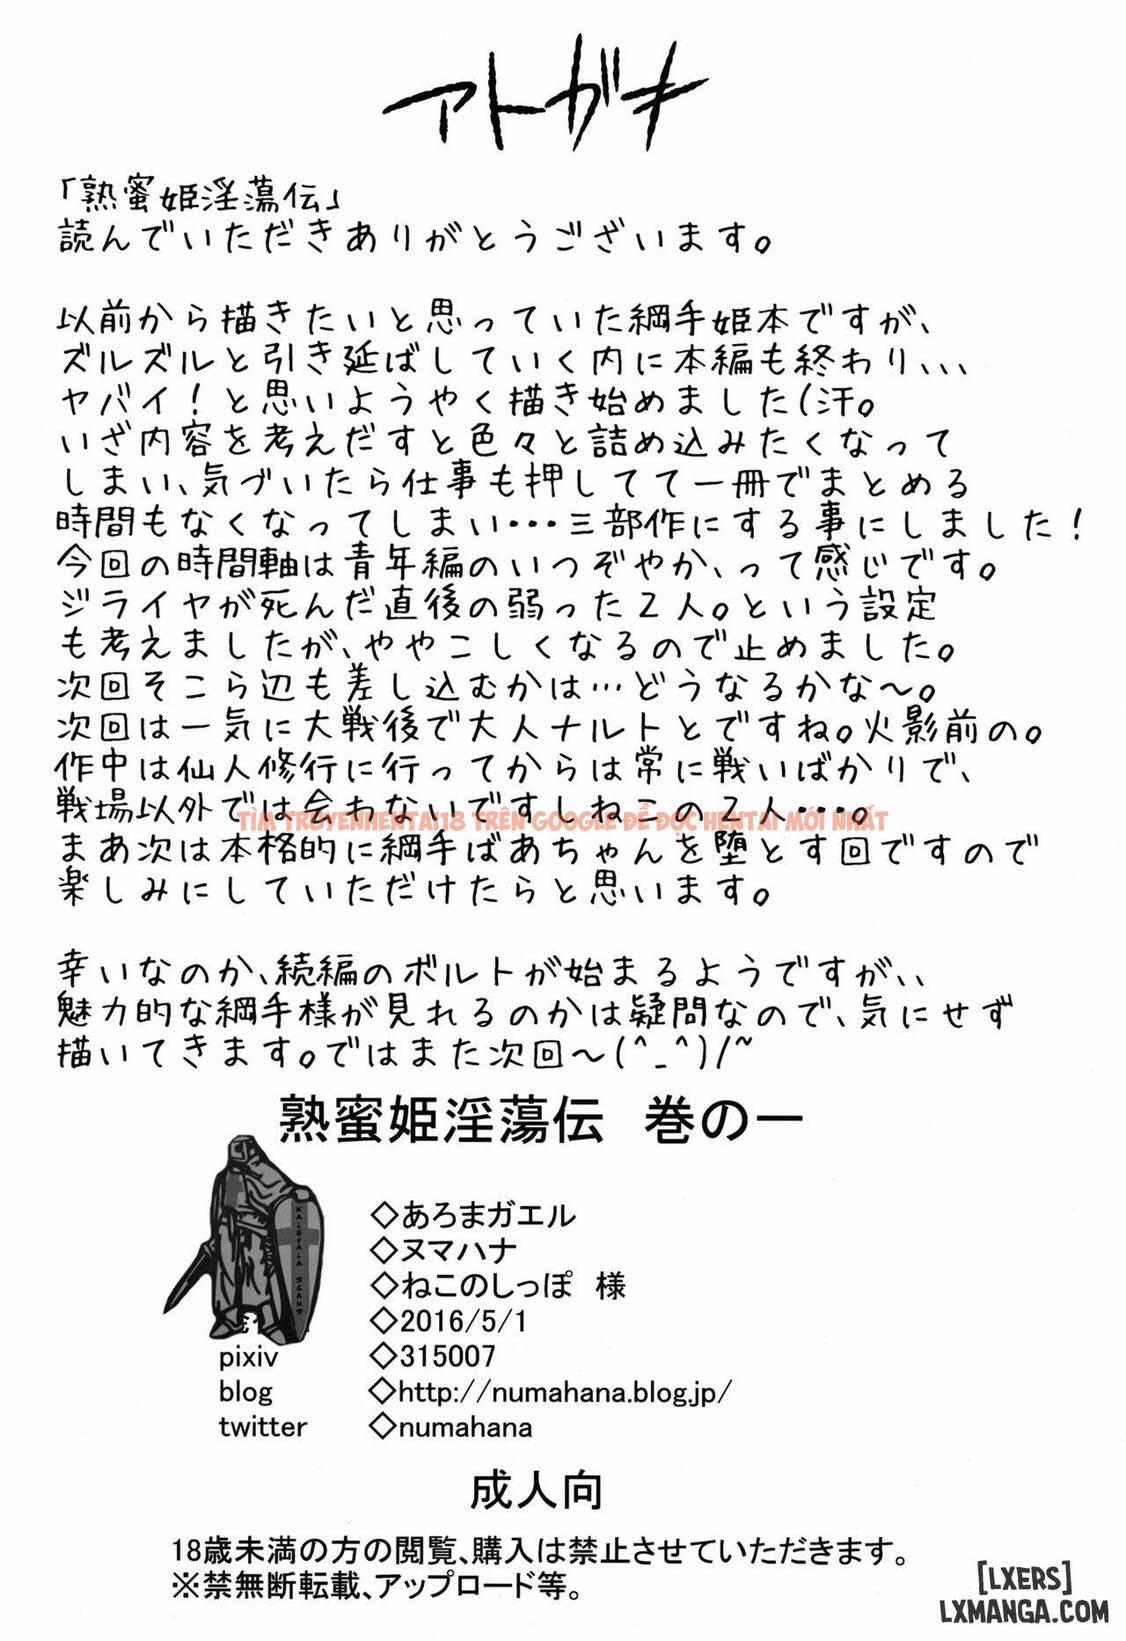 アトガキ
「熟蜜姫淫蕩伝」
読んでいただきありがとうございます。
以前から描きたいと思っていた綱手姫本ですが、
ズルズルと引き延ばしていく内に本編も終わり、、、
ヤバイ！と思いようやく描き始めました(汗。
いざ内容を考えだすと色々と詰め込みたくなって
しまい、気づいたら仕事も押してて一冊でまとめる
時間もなくなってしまい・・・三部作にする事にしました！
今回の時間軸は青年編のいつぞやか、って感じです。
ジライヤが死んだ直後の弱った2人。という設定
も考えましたが、ややこしくなるので止めました。
次回そこら辺も差し込むかは…どうなるかな〜。
次回は一気に大戦後で大人ナルトとですね。火影前の。
作中は仙人修行に行ってからは常に戦いばかりで、
戦場以外では会わないですしねこの2人・・・。
TÌM TRUYENHENTAI18 TRÊN GOOGLE ĐỂ ĐỌC HENTAI MỚI NHẤT
まあ次は本格的に綱手ばあちゃんを堕とす回ですので
楽しみにしていただけたらと思います。
幸いなのか、続編のボルトが始まるようですが、、
魅力的な綱手様が見れるのかは疑問なので、気にせず
描いてきます。ではまた次回〜(^_^)/~
熟蜜姫淫蕩伝　巻の一
KALEVALA SCANS
◇あろまガエル
◇ヌマハナ
◇ねこのしっぽ 様
◇2016/5/1
pixiv ◇315007
blog ◇http://numahana.blog.jp/
twitter ◇numahana
成人向
18歳未満の方の閲覧、購入は禁止させていただきます。
※禁無断転載、アップロード等。
[LXERS]
LXMANGA.COM